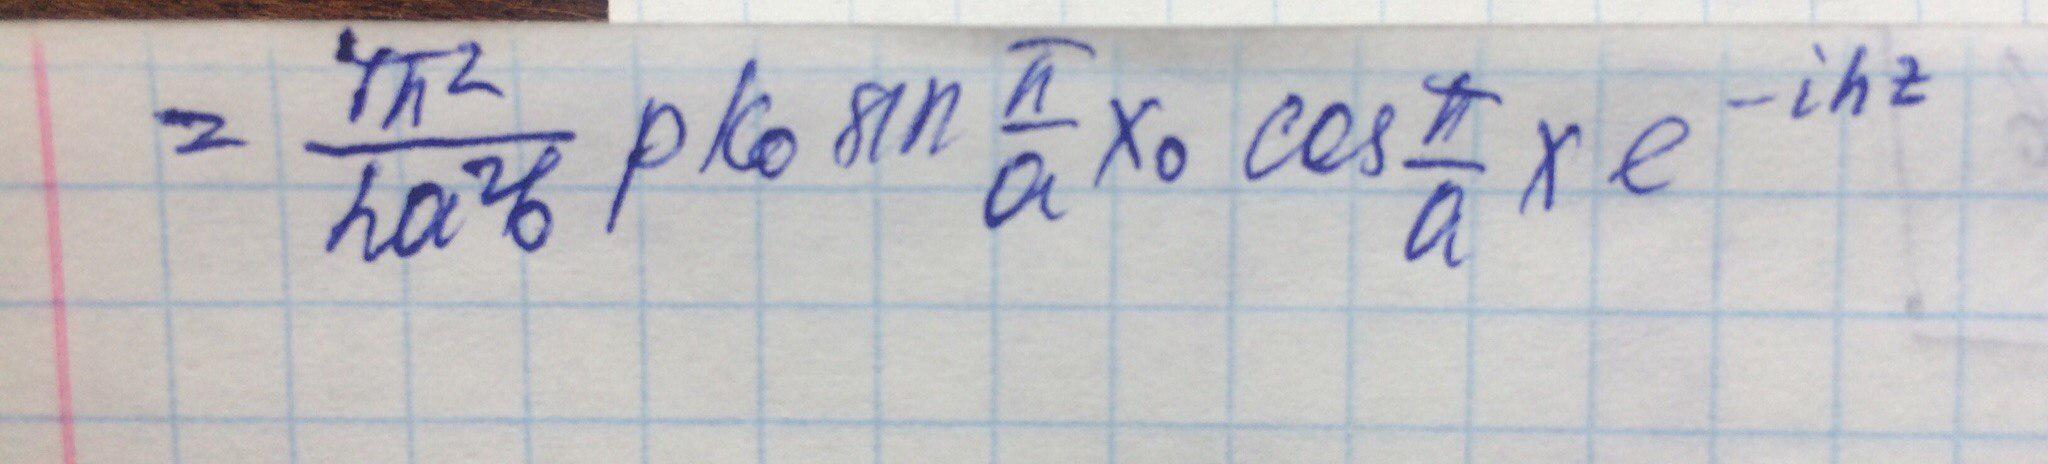 = \frac{4π^2}{ha^2b} p k_0 sin \frac{π}{a} x_0 cos \frac{π}{a} x e^{-ihz}